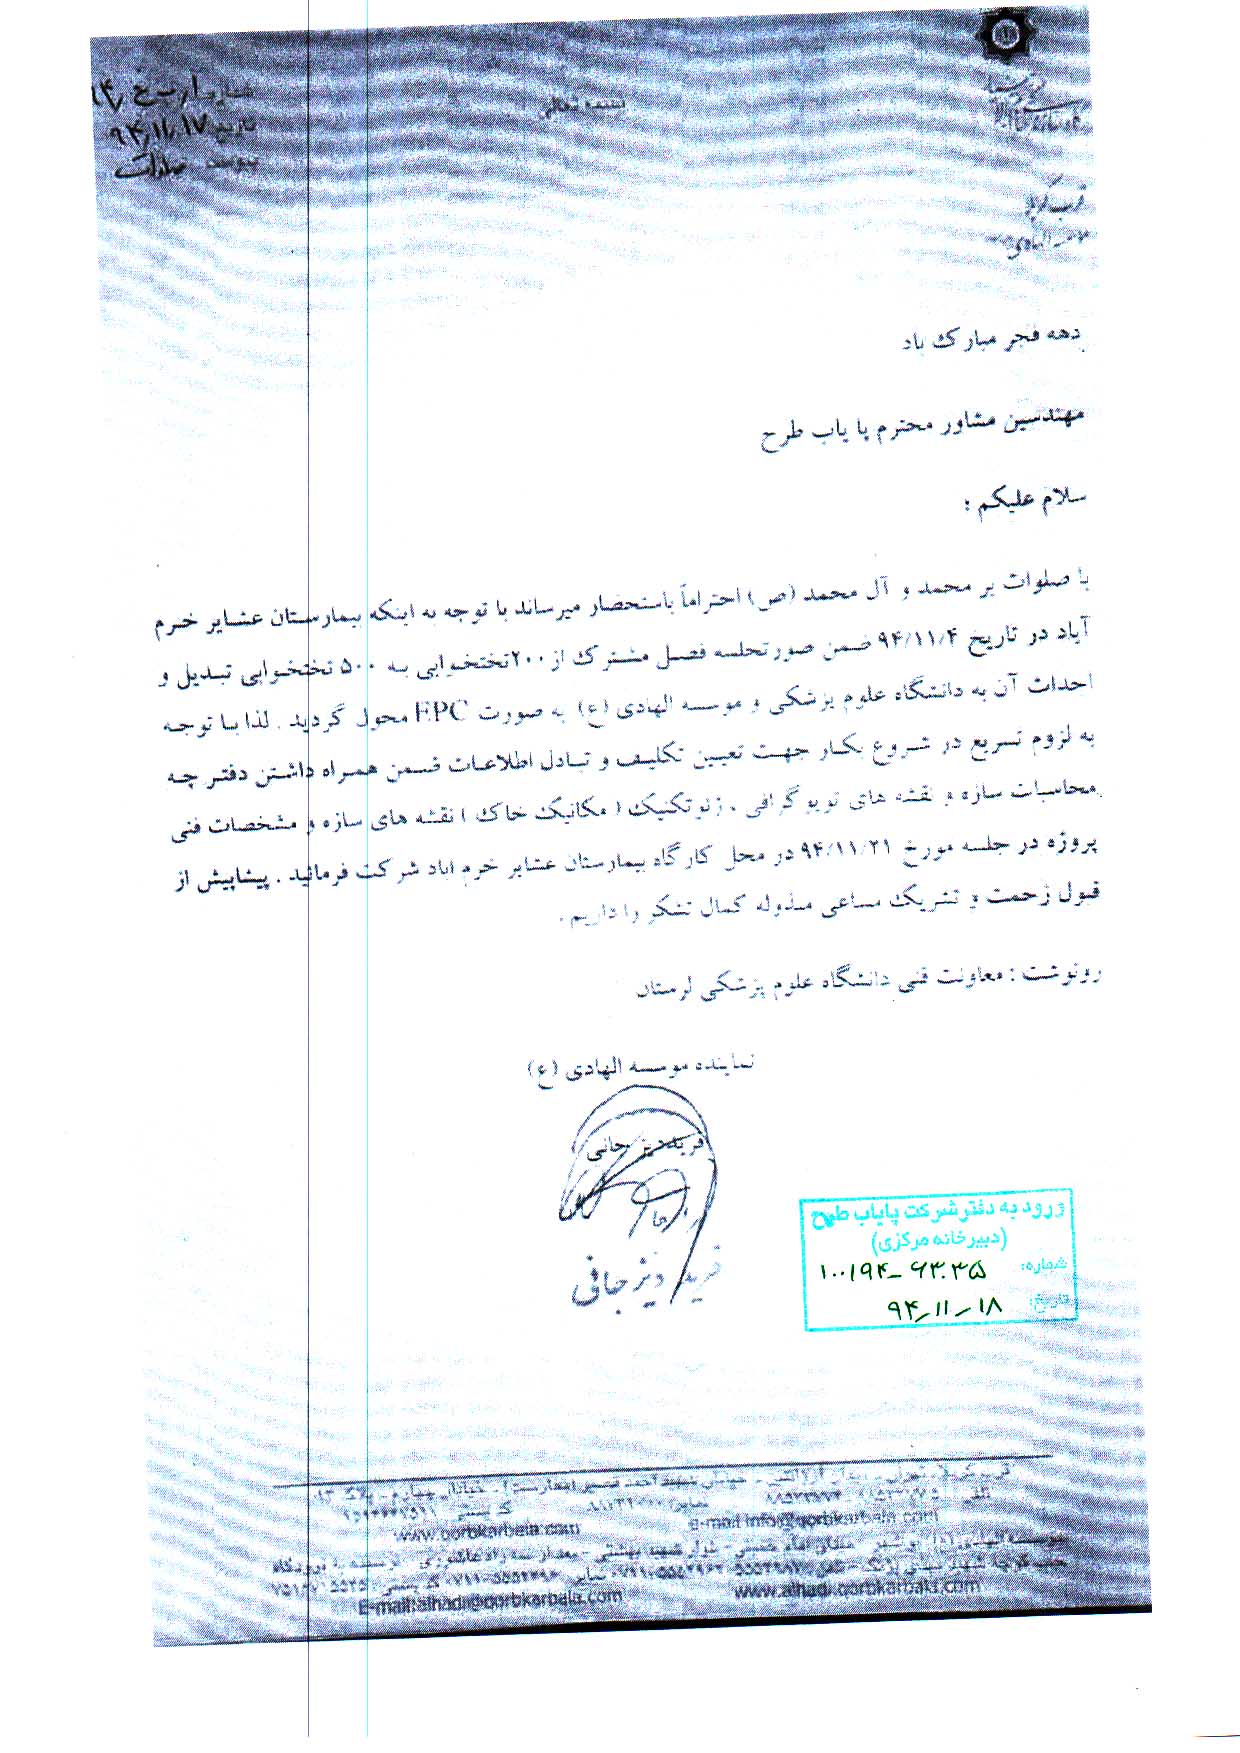 بسمه تعالی
تاریخ ۹۴/۱۱/۱۷
قرب کربلا
موسسه الهادی
دهه فجر مبارک باد
مهندسین مشاور محترم پا یاب طرح
سلام علیکم :
با صلوات بر محمد و آل محمد (ص) احتراماً باستحضار میرساند با توجه به اینکه بیمارستان عشایر خرم
آباد در تاریخ ۹۴/۱۱/۴ ضمن صورتجلسه فصل مشترک از ۲۰۰تختخوابی به ۵۰۰ تختخوابی تبدیل و
احداث آن به دانشگاه علوم پزشکی و موسسه الهادی (ع) به صورت EPC محول گردید . لذا با توجه
به لزوم تسریع در شروع بکار جهت تعیین تکلیف و تبادل اطلاعات ضمن همراه داشتن دفتر چه
محاسبات سازه و نقشه های توپوگرافی . ژئوتکنیک ( مکانیک خاک ) نقشه های سازه و مشخصات فنی
پروژه در جلسه مورخ ۹۴/۱۱/۲۱ در محل کارگاه بیمارستان عشایر خرم اباد شرکت فرمائید . پیشاپیش از
قبول زحمت و تشریک مساعی مبذوله کمال تشکر را داریم .
رونوشت : معاونت فنی دانشگاه علوم پزشکی لرستان
نماینده موسسه الهادی (ع)
ورود به دفتر شرکت پایاب طرح
(دبیرخانه مرکزی)
شماره: ۱۰۰/۹۴-۶۳۰۳۵
تاریخ: ۹۴-۱۱-۱۸
www.qorbkarbala.com
e-mail info@qorbkarbala.com
www.alhadi.qorbkarbala.com
E-mail:alhadi@qorbkarbala.com